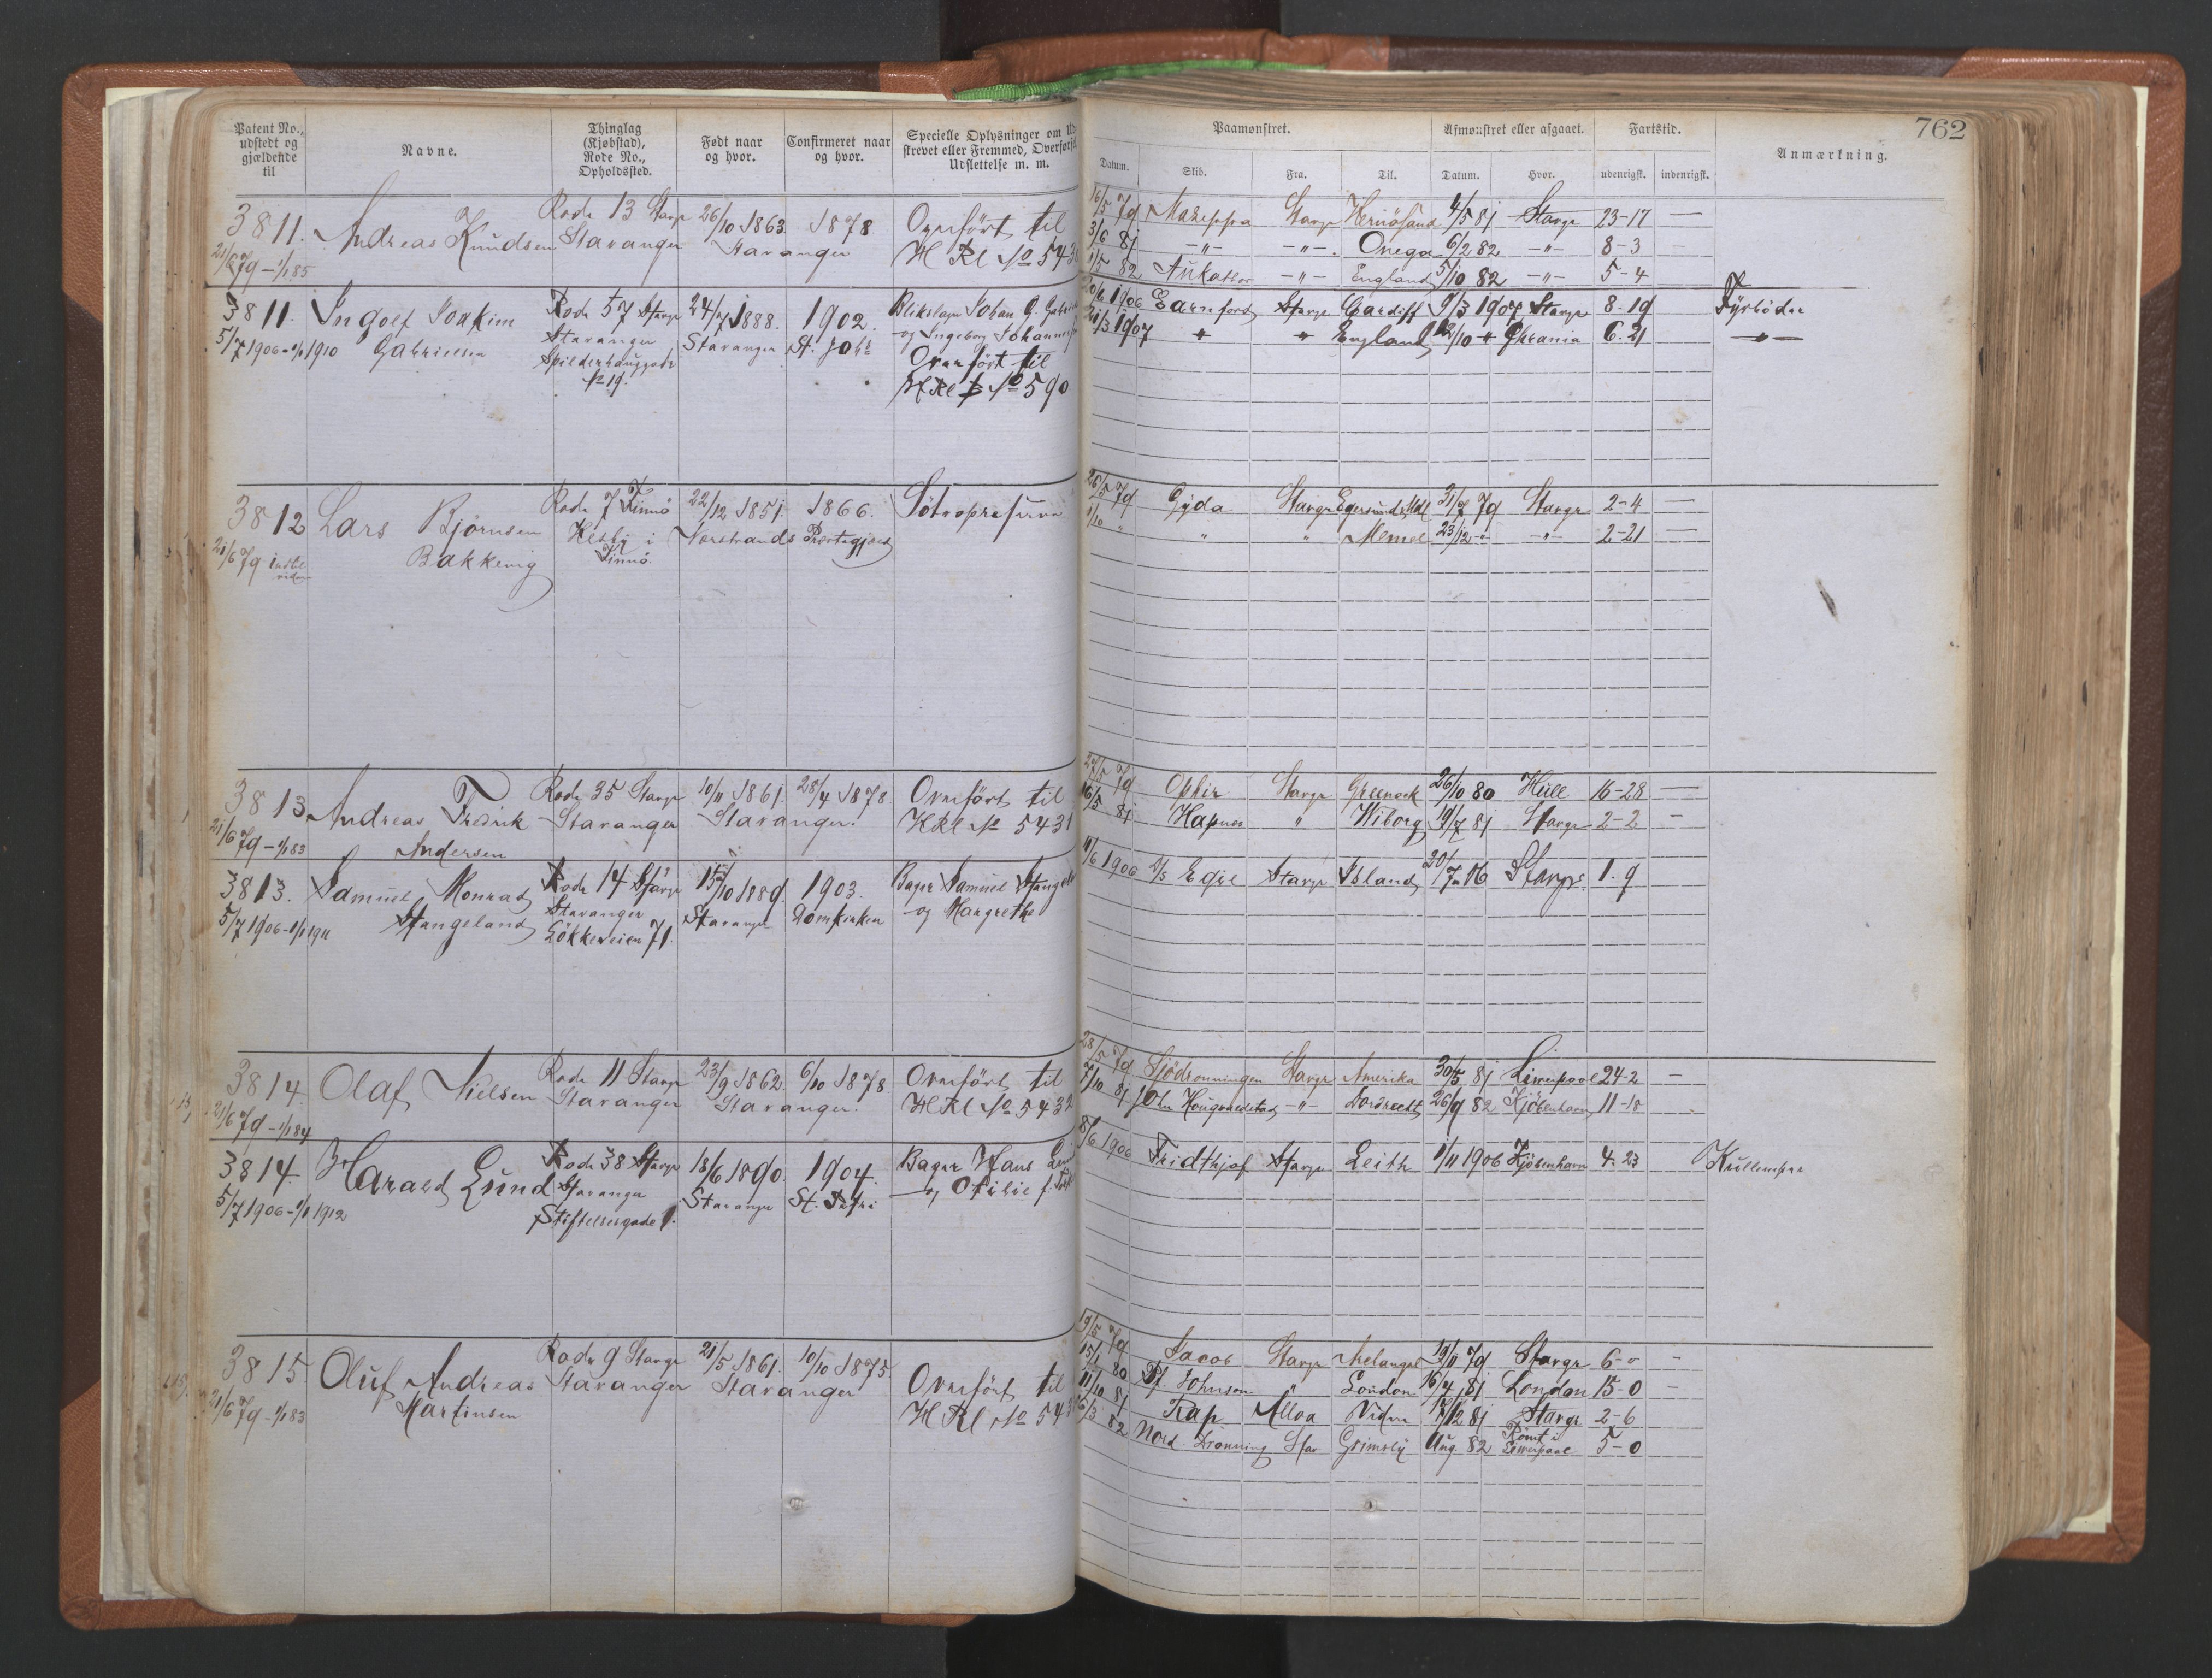 762
Patent No., udstedt og gjældende til
Navne.
Thinglag (Kjøbstad), Rode No., Opholdssted.
Født naar og hvor.
Confirmeret naar og hvor.
Specielle Oplysninger om Ud-
skrevet eller Fremmed, Overførsel
Udslettelse m. m.
Paamønstret.
Afmønstret eller afgaaet.
Fartstid.
Anmærkning.
Datum. Skib. Fra. Til. Datum. Hvor. udenrigsk. indenrigsk.
3811. Andreas Knudsen Rode 13 Stavgr 26/10 1863. 1878. Overført til
21/6 79 - 1/1 85 Stavanger Stavanger H Rl No 543
16/5 79 Mazeppa Stavgr Hernösand 4/5 81 Stavgr 23-17 —
3/6 81 -"- -"- Onega 6/2 82 -"- 8-3 —
1/5 82 -"- England 5/10 82 -"- 5-4 —
3811. Ingolf Joakim Rode 57 Stavgr 24/7 1888. 1902. Bliksl Johan G.
5/7 1906 - 1/1 1910 Gabrielsen Stavanger Stavanger St. Joh og Ingeborg Johanne
Spilderhauggade Overført til
No 19. H Rl No 590
1906 Earnford Stavgr Cardiff 9/3 1907 Stavgr 8. 19 Fyrböder
21/3 1907 " " England 12/10 " Chrania 6. 21 —"—
3812 Lars Bjørnsen Rode 7 Finnö 22/12 1851. 1866. Søtropræserv
21/6 79 indtil videre Bakkevig Hesby i Finnö. Nerstrands Præstegjeld
26/5 79 Gyda Stavgr Egersund 31/7 79 Stavgr 2-4 —
1/10 " " " Memel 23/12 -"- -"- 2-21 —
3813 Andreas Fredrik Rode 35 Stavgr 10/11 1861. 28/4 1878. Overført til
21/6 79 - 1/1 83 Andersen Stavanger Stavanger. H Rl No 5431
27/5 79 Ophir Stavgr Greenock 26/10 80 Hull 16-28 —
16/5 81 Hapnes " Wiborg 19/7 81 Stavgr 2-2 —
3813. Samuel Monrad Rode 14 Stavgr 15/10 1889. 1903. Bager Samuel Stangela
5/7 1906 - 1/1 1911 Stangeland Stavanger Stavanger Domkirken og Margrethe
Lökkeveien 71.
11/6 1906 D/S Egil Stavgr Island 20/7 06 Stavgr. 1. 9
3814. Olaf Nielsen Rode 11 Stavgr 23/9 1862. 6/10 1878. Overført til
21/6 79 - 1/1 84 Stavanger Stavanger. H Rl No 5432
28/5 79 Sjödronningen Stavgr Amerika 30/5 81 Liverpool 24-2 —
7/10 81 John Haugvaldstad -"- Dordrecht 26/9 82 Kjöbenhavn 11-18
3814. Harald Lund Rode 38 Stavgr 18/6 1890. 1904. Bager Hans Lun
5/7 1906 - 1/1 1912 Stavanger Stavanger St. Petri og Otilie f.
Stiftelsesgade 1.
8/6 1906 Fridthjof Stavgr Leith 1/11 1906 Kjöbenhavn 4. 23 Kullemper
3815. Oluf Andreas Rode 9 Stavgr 21/5 1861. 10/10 1875. Overført til
21/6 79 - 1/1 83 Martinsen Stavanger Stavanger H Rl No 543
19/5 79 Jacob Stavgr Archangel 19/11 79 Stavgr 6-0 —
80 Johnsen " London 16/4 81 London 15-0 —
11/10 81 Rap Alloa Viden 17/12 81 Stavgr 2-6
82 Nord. Dronning Stav Grimsby Aug. 82 Rømt i Liverpool 5-0